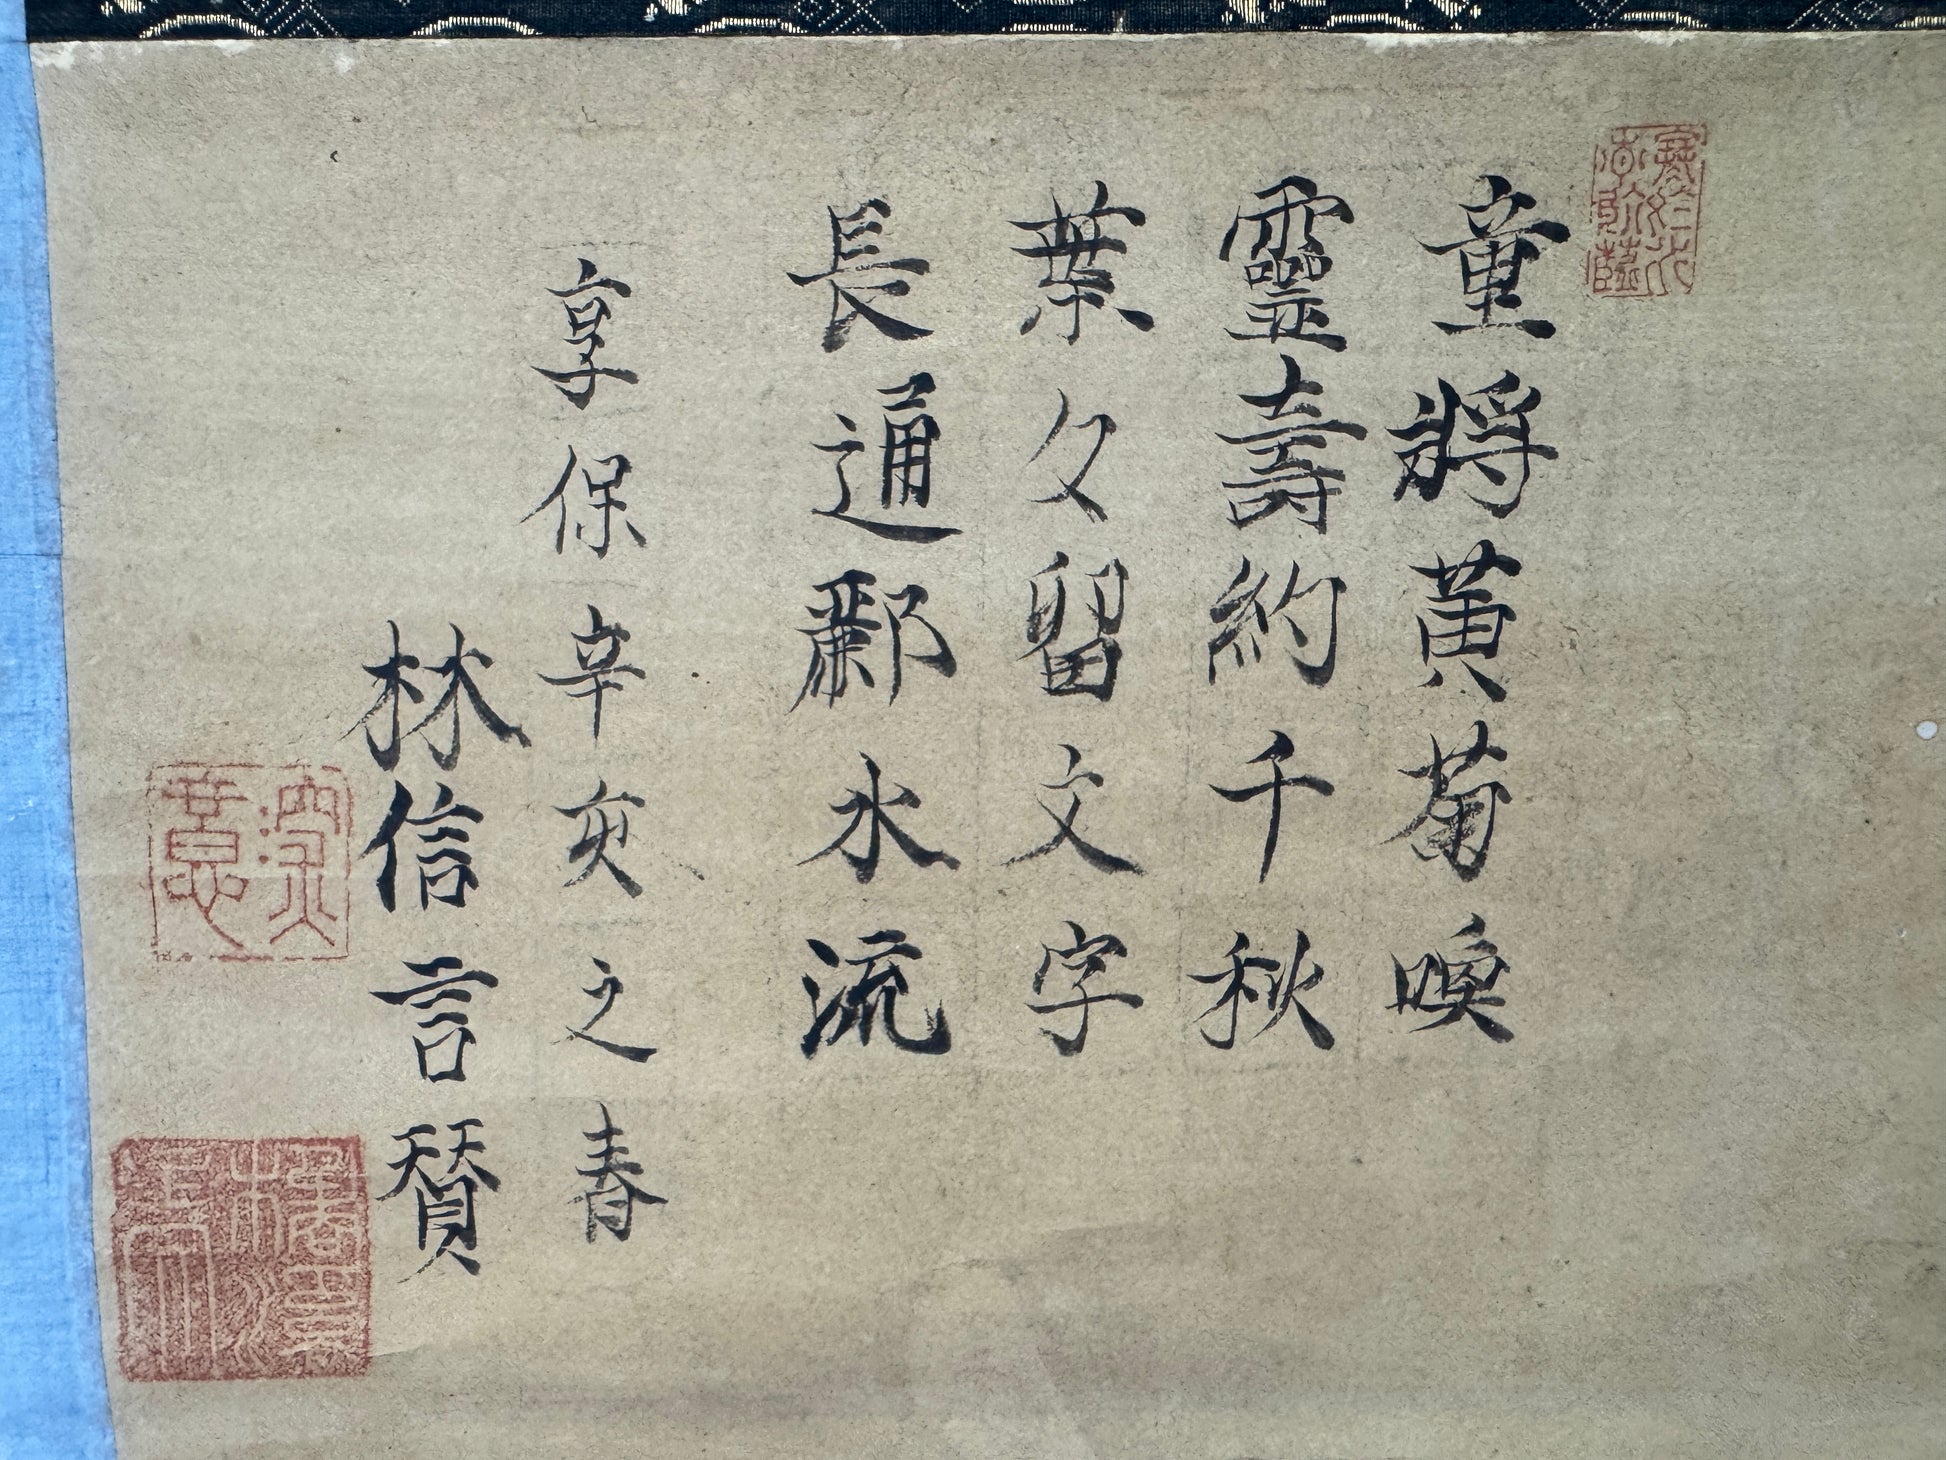 童將黃菊喚
靈壽約千秋
葉々留文字
長通酈水流
享保辛亥之春
林信言賛